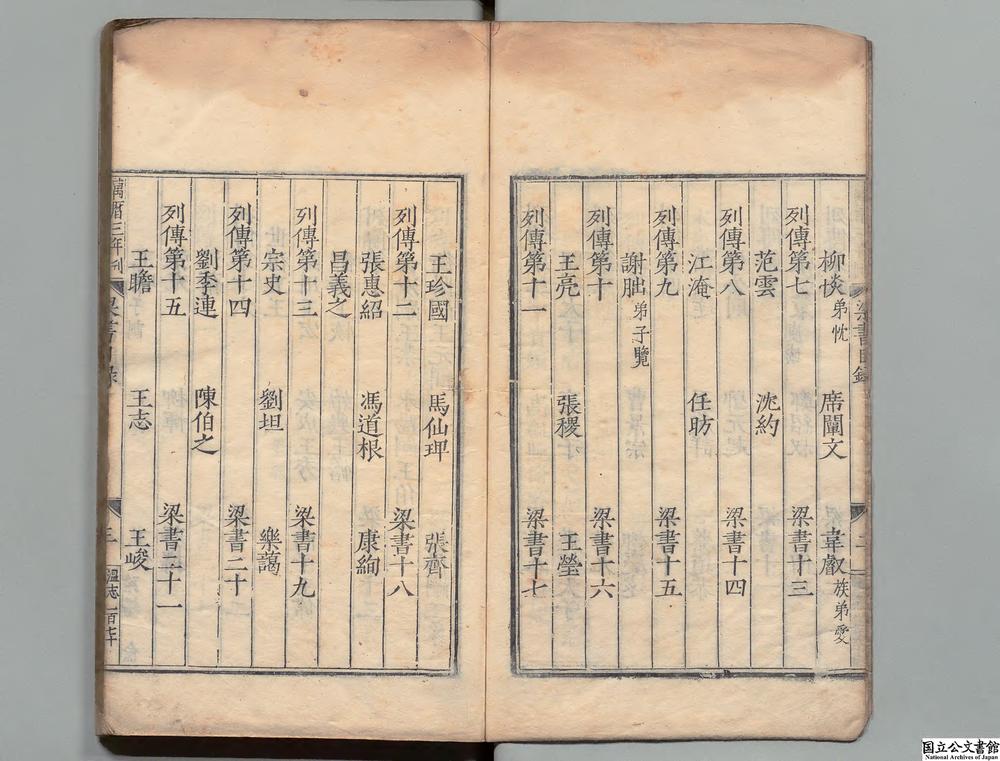 梁書目錄 二
柳惔 弟忱 席闡文 韋叡 族弟愛
列傳第七 梁書十三
范雲 沈約
列傳第八 梁書十四
江淹 任昉
列傳第九 梁書十五
謝朏 弟子覽
列傳第十 梁書十六
王亮 張稷 王瑩
列傳第十一 梁書十七
王珍國 馬仙琕 張齊
列傳第十二 梁書十八
張惠紹 馮道根 康絢
昌義之
列傳第十三 梁書十九
宗史 劉坦 樂藹
列傳第十四 梁書二十
劉季連 陳伯之
列傳第十五 梁書二十一
王瞻 王志 王峻
萬曆三年刊 梁書目錄 三
国立公文書館
National Archives of Japan